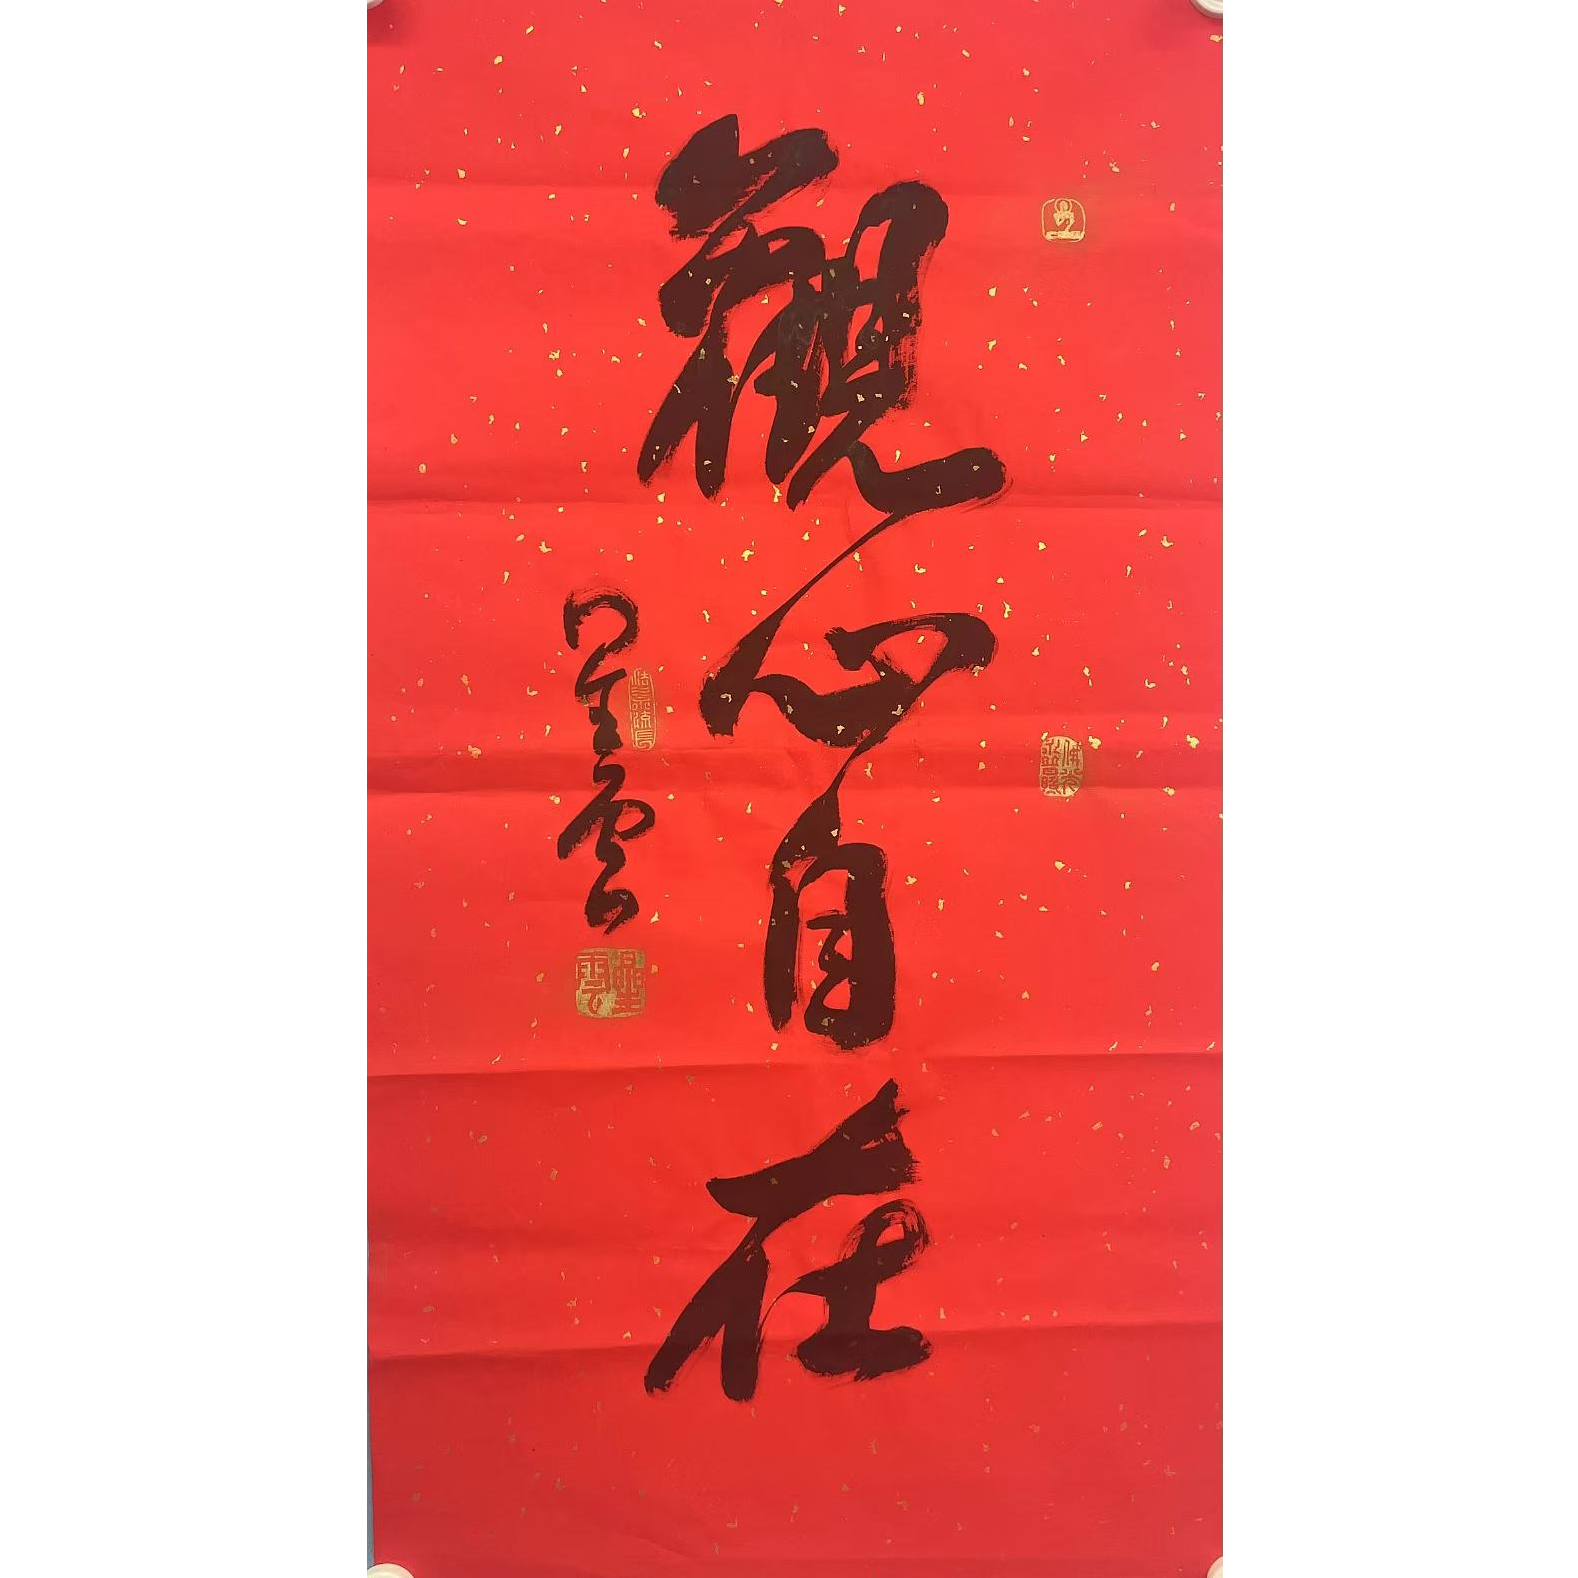 觀心自在
星雲
星雲